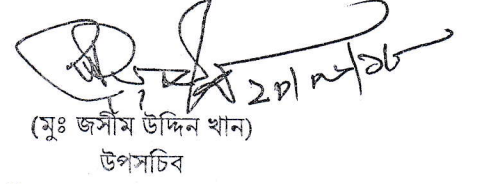 (মুঃ জসীম উদ্দিন খান)
উপসচিব